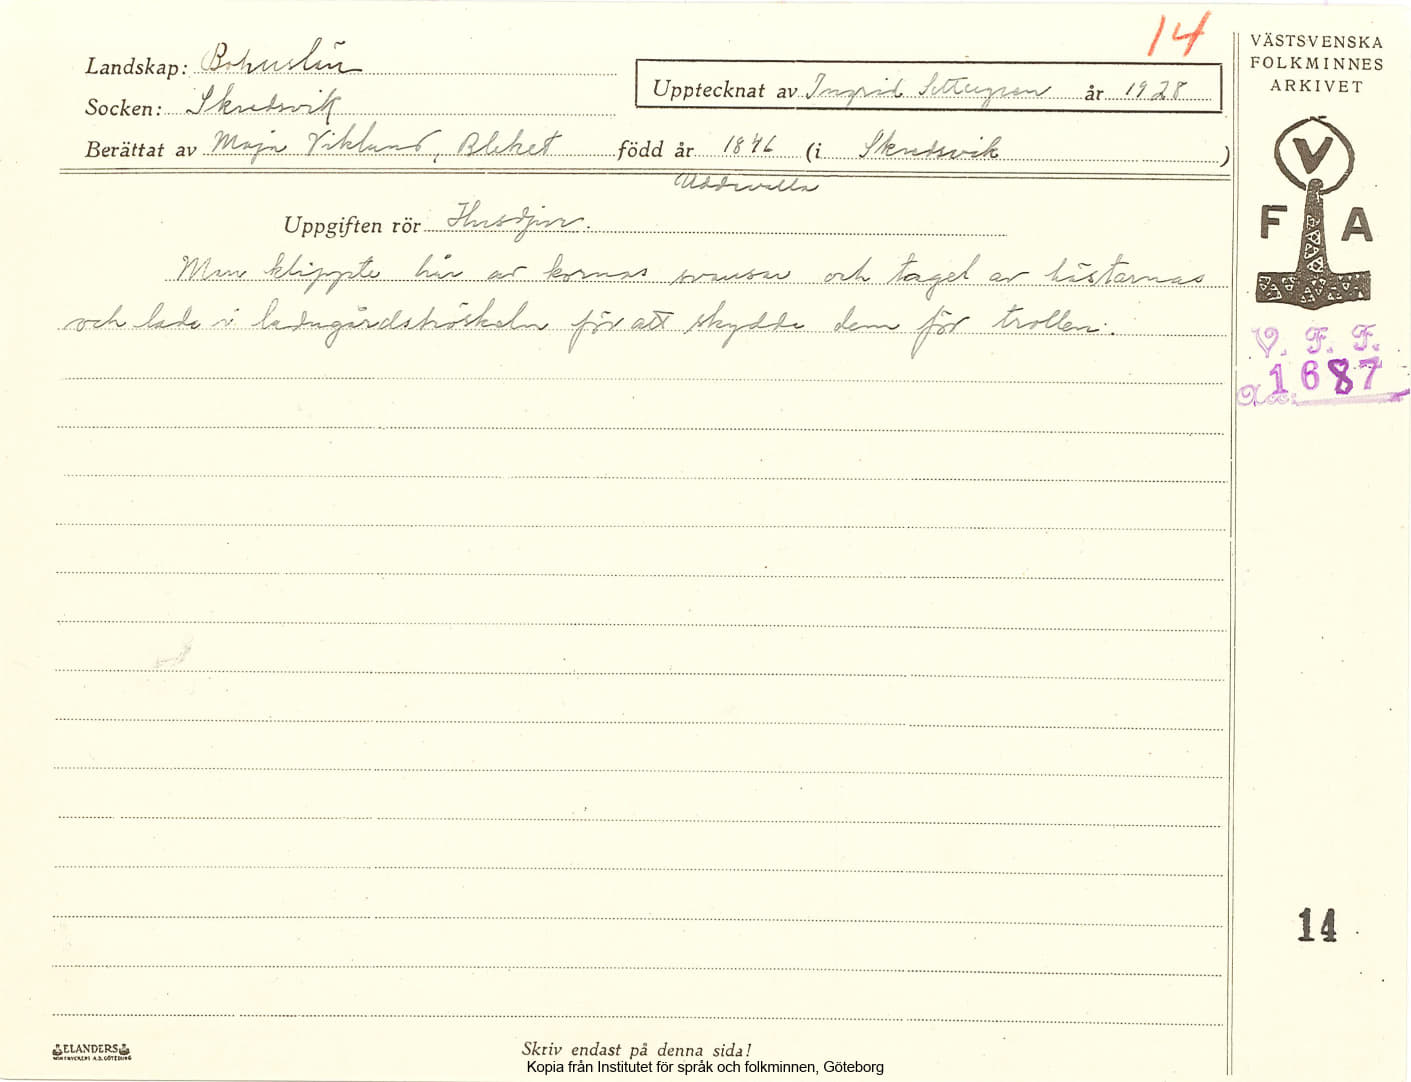 14
Landskap: Bohuslän
Upptecknat av Ingrid år 1928
Socken: Skredsvik
Berättat av Maja Viklund, Bleket född år 1846 (i Skredsvik)
Uddevalla
Uppgiften rör Husdjur.
Man klippte hår av kornas svansar och tagel av hästarnas
och lade i ladugårdströskeln för att skydda dem för trollen.
VÄSTSVENSKA
FOLKMINNES
ARKIVET
V
F A
V. F. F.
1687
Acc:
14
ELANDERS
Skriv endast på denna sida!
Kopia från Institutet för språk och folkminnen, Göteborg